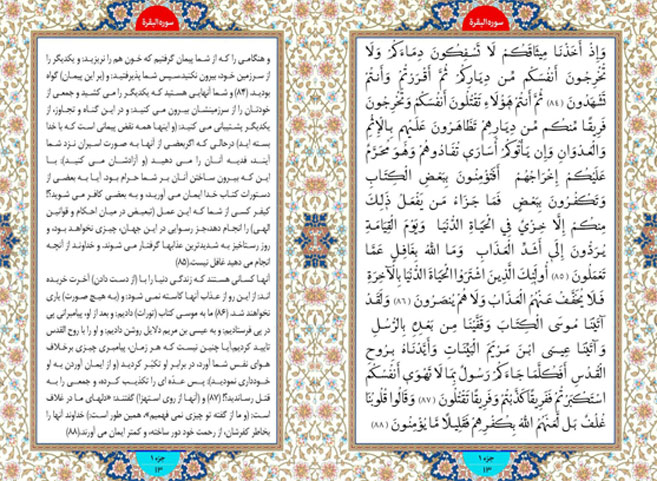 سوره البقرة
وَإِذْ أَخَذْنَا مِيثَاقَكُمْ لَا تَسْفِكُونَ دِمَاءَكُمْ وَلَا
تُخْرِجُونَ أَنْفُسَكُمْ مِّن دِيَارِكُمْ ثُمَّ أَقْرَرْتُمْ وَأَنتُمْ
تَشْهَدُونَ (۸۴) ثُمَّ أَنتُمْ هَؤُلَاءِ تَقْتُلُونَ أَنْفُسَكُمْ وَتُخْرِجُونَ
فَرِيقًا مِّنكُم مِّن دِيَارِهِمْ تَظَاهَرُونَ عَلَيْهِم بِالْإِثْمِ
وَالْعُدْوَانِ وَإِن يَأْتُوكُمْ أُسَارَى تُفَادُوهُمْ وَهُوَ مُحَرَّمٌ
عَلَيْكُمْ إِخْرَاجُهُمْ أَفَتُؤْمِنُونَ بِبَعْضِ الْكِتَابِ
وَتَكْفُرُونَ بِبَعْضٍ فَمَا جَزَاءُ مَن يَفْعَلُ ذَلِكَ
مِنكُمْ إِلَّا خِزْيٌ فِي الْحَيَاةِ الدُّنْيَا وَيَوْمَ الْقِيَامَةِ
يُرَدُّونَ إِلَى أَشَدِّ الْعَذَابِ وَمَا اللَّهُ بِغَافِلٍ عَمَّا
تَعْمَلُونَ (۸۵) أُولَئِكَ الَّذِينَ اشْتَرَوُا الْحَيَاةَ الدُّنْيَا بِالْآخِرَةِ
فَلَا يُخَفَّفُ عَنْهُمُ الْعَذَابُ وَلَا هُمْ يُنصَرُونَ (۸۶) وَلَقَدْ
آتَيْنَا مُوسَى الْكِتَابَ وَقَفَّيْنَا مِن بَعْدِهِ بِالرُّسُلِ
وَآتَيْنَا عِيسَى ابْنَ مَرْيَمَ الْبَيِّنَاتِ وَأَيَّدْنَاهُ بِرُوحِ
الْقُدُسِ أَفَكُلَّمَا جَاءَكُمْ رَسُولٌ بِمَا لَا تَهْوَى أَنْفُسُكُمُ
اسْتَكْبَرْتُمْ فَفَرِيقًا كَذَّبْتُمْ وَفَرِيقًا تَقْتُلُونَ (۸۷) وَقَالُوا قُلُوبُنَا
غُلْفٌ بَل لَّعَنَهُمُ اللَّهُ بِكُفْرِهِمْ فَقَلِيلًا مَّا يُؤْمِنُونَ (۸۸)
جزء ۱
۱۳
سوره البقرة
و هنگامی را که از شما پیمان گرفتیم که خون هم را نریزید؛ و یکدیگر را
از سرزمین خود، بیرون نکنید.سپس شما پذیرفتید؛ و (بر این پیمان) گواه
بودید.(۸۴) و شما آنهایی هستید که یکدیگر را می کشید و جمعی از
خودتان را از سرزمینشان بیرون می کنید؛ و در این گناه و تجاوز، از
یکدیگر پشتیبانی می کنید؛ (و اینها همه نقض پیمانی است که با خدا
بسته اید) درحالی که اگربعضی از آنها به صورت اسیران نزد شما
آیند، فدیه آنان را می دهید (و آزادشان می کنید)؛ با
این که بیرون ساختن آنان بر شما حرام بود. آیا به بعضی از
دستورات کتاب خدا ایمان می آورید، و به بعضی کافر می شوید؟!
کیفر کسی از شما که این عمل (تبعیض در میان احکام و قوانین
الهی) را انجام دهدجز رسوایی در این جهان، چیزی نخواهد بود، و
روز رستاخیز به شدیدترین عذابها گرفتار می شوند. و خداوند از آنچه
انجام می دهید غافل نیست.(۸۵)
آنها کسانی هستند که زندگی دنیا را با (از دست دادن) آخرت خریده
اند؛ از این رو از عذاب آنها کاسته نمی شود؛ و (به هیچ صورت) یاری
نخواهند شد.(۸۶) ما به موسی کتاب (تورات) دادیم؛ و بعد از او، پیامبرانی پی
در پی فرستادیم؛ و به عیسی بن مریم دلایل روشن دادیم؛ و او را با روح القدس
تایید کردیم.آیا چنین نیست که هر زمان، پیامبری چیزی برخلاف
هوای نفس شما آورد، در برابر او تکبّر کردید (و از ایمان آوردن به او
خودداری نمودید)؛ پس عده ای را تکذیب کرده، و جمعی را به
قتل رساندید؟! (۸۷) و (آنها از روی استهزا) گفتند: «دلهای ما در غلاف
است؛ (و ما از گفته تو چیزی نمی فهمیم)»، همین طور است؛) خداوند آنها را
بخاطر کفرشان، از رحمت خود دور ساخته، و کمتر ایمان می آورند.(۸۸)
جزء ۱
۱۳